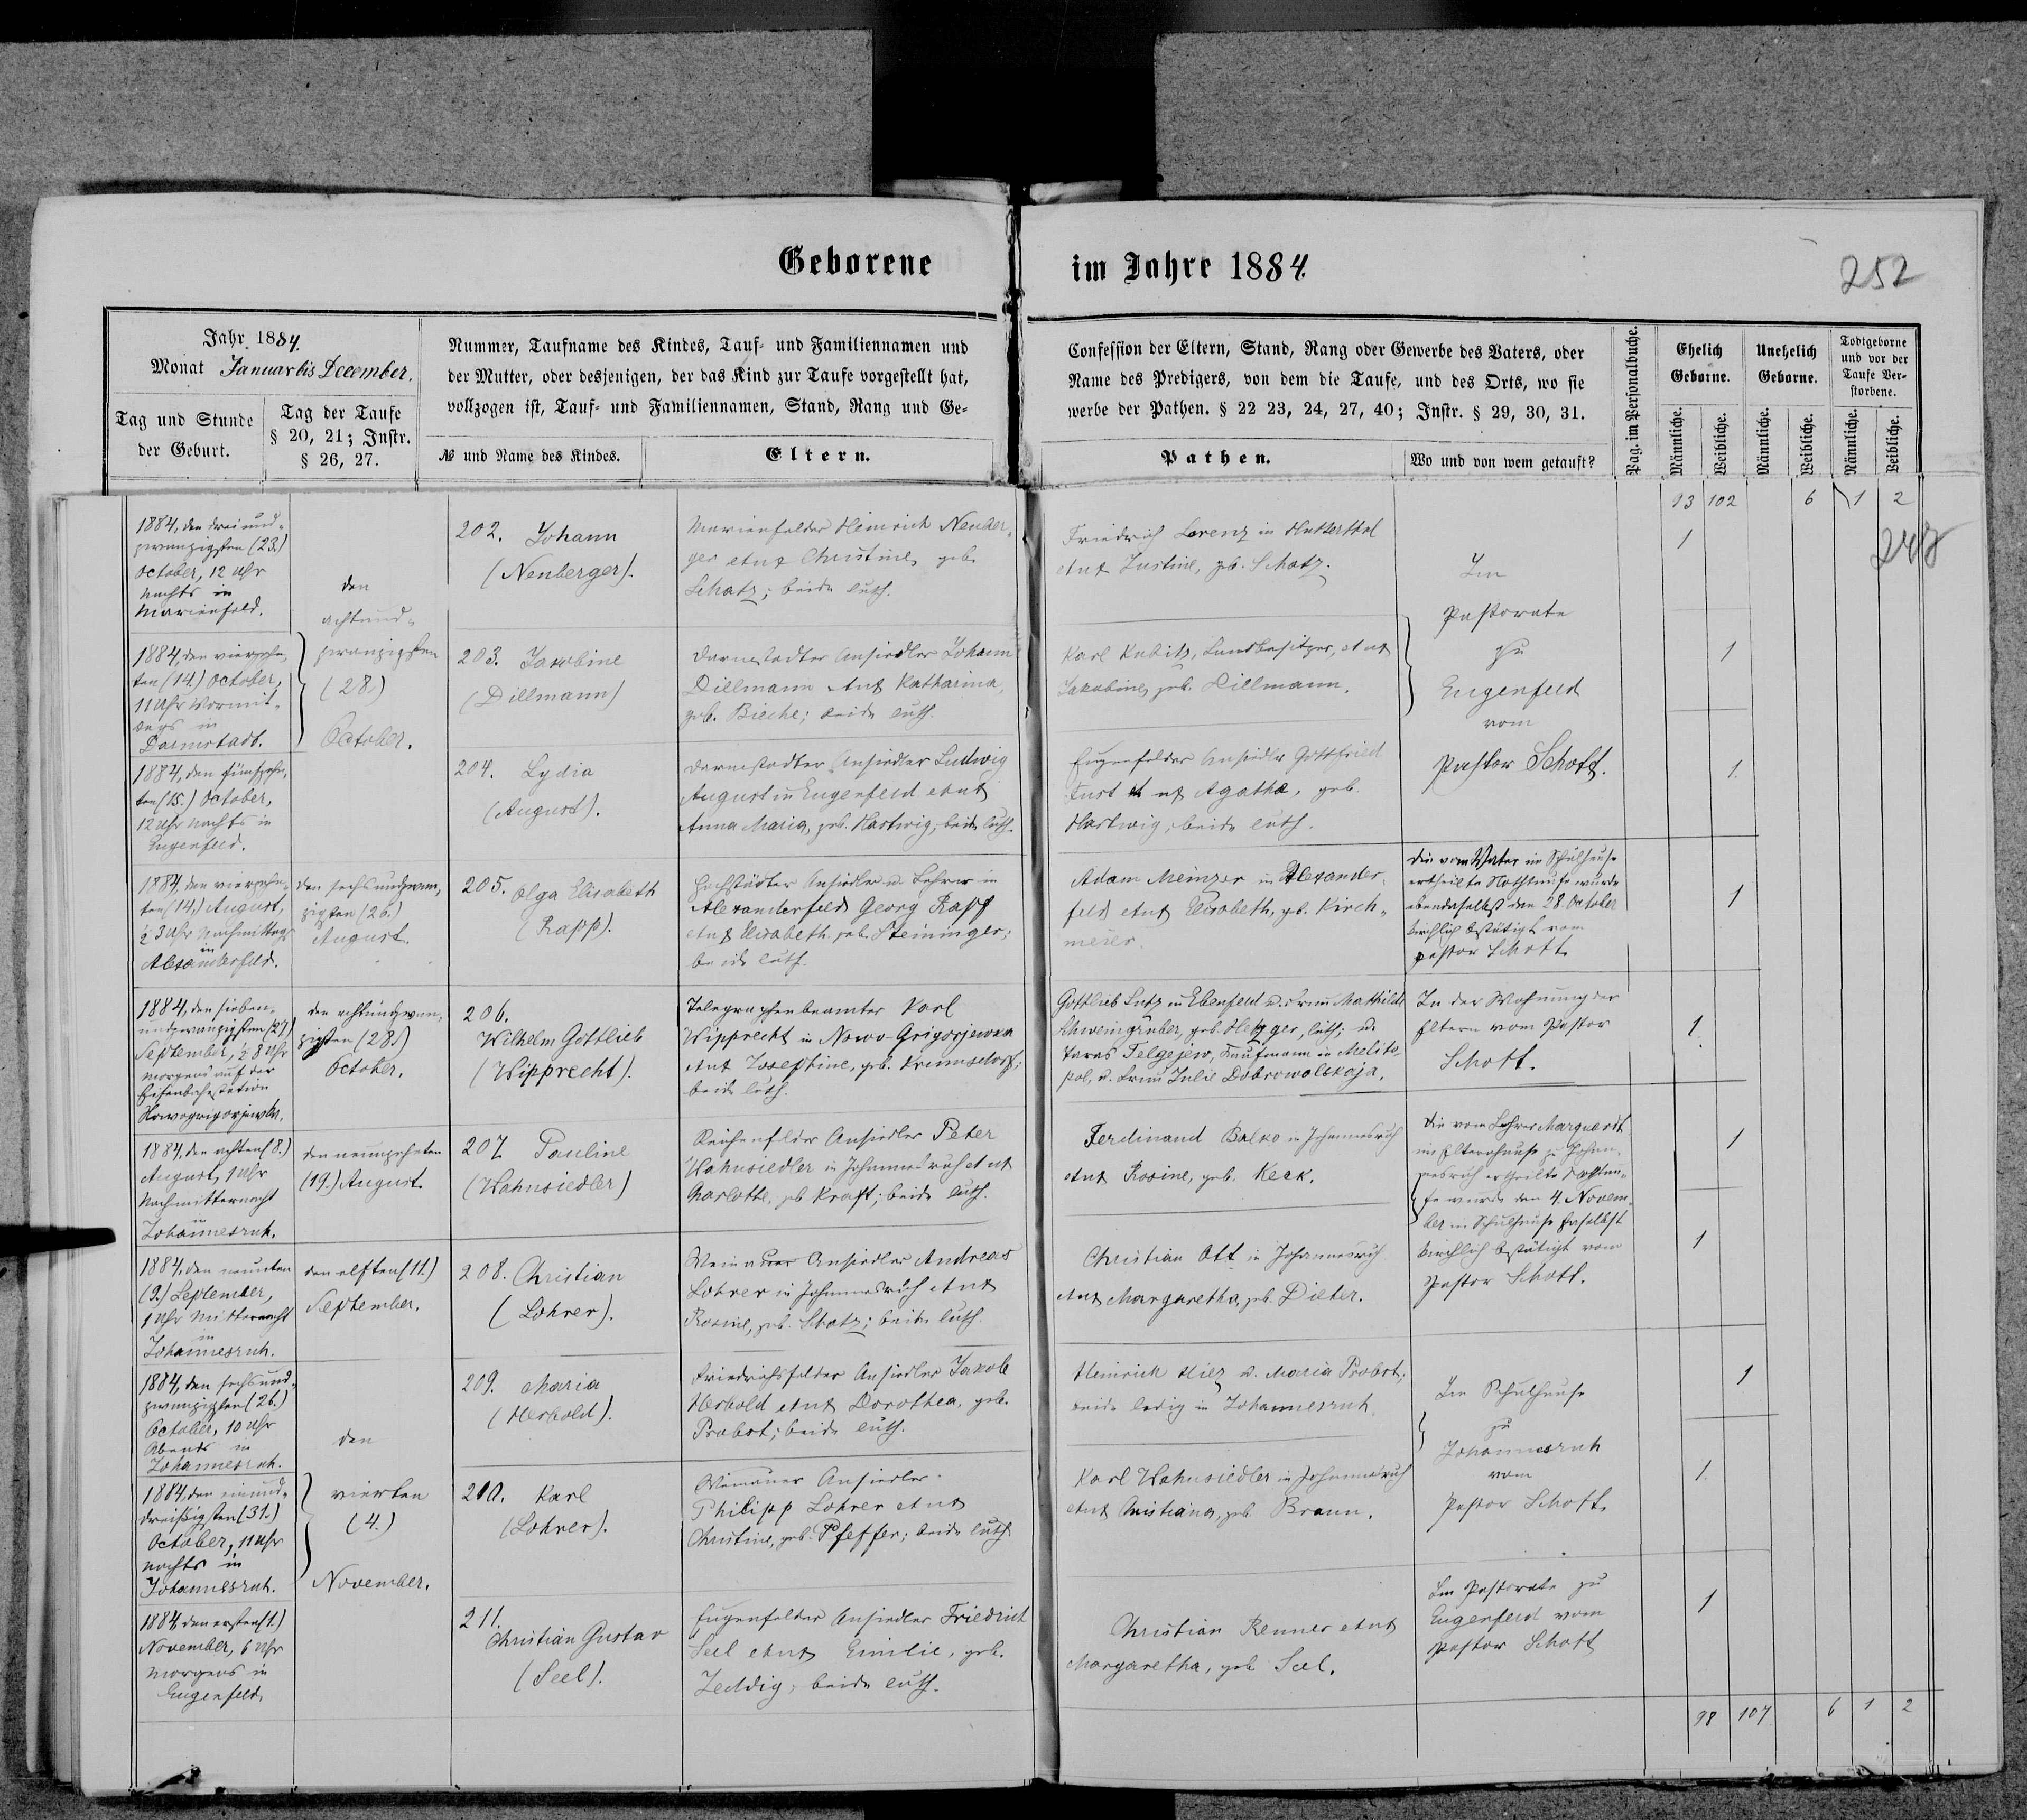 Geborene im Jahre 1884.
252
Jahr 1884.
Monat Januar bis December.
Tag und Stunde
der Geburt.
Tag der Taufe
§ 20, 21; Instr.
§ 26, 27.
Nummer, Taufname des Kindes, Tauf- und Familiennamen und
der Mutter, oder desjenigen, der das Kind zur Taufe vorgestellt hat,
vollzogen ist, Tauf- und Familiennamen, Stand, Rang und Ge-
№ und Name des Kindes.
Eltern.
Confession der Eltern, Stand, Rang oder Gewerbe des Vaters, oder
Name des Predigers, von dem die Taufe, und des Orts, wo sie
werbe der Pathen. § 22 23, 24, 27, 40; Instr. § 29, 30, 31.
Pathen.
Wo und von wem getauft?
Pag. im Personalbuche.
Ehelich
Geborne.
Unehelich
Geborne.
Todtgeborne
und vor der
Taufe Ver-
storbene.
Männliche.
Weibliche.
Männliche.
Weibliche.
Männliche.
Weibliche.
93 102 6 1 2
1884, den dreiund-
zwanzigsten (23.)
October, 12 Uhr
Nachts in
Marienfeld.
den
achtund-
zwanzigsten
(28.)
October.
202. Johann
(Neuberger).
Marienfelder Heinrich Neuber-
ger et ux Christine, geb.
Schatz; beide luth.
Friedrich Lorenz in Hutterthal
et ux Justine, geb. Schatz.
Im
Pastorate
zu
Eugenfeld
vom
Pastor Schott.
1
1884, den vierzehn-
ten (14.) October,
11 Uhr Vormit-
tags in
Darmstadt.
203. Jakobine
(Dillmann)
Darmstadter Ansiedler Johann
Dillmann et ux Katharina,
geb. Bieche; beide luth.
Karl Kubitz, Landbesitzer, et ux
Jakobine, geb. Dillmann.
1
1884, den fünfzehn-
ten (15.) October,
12 Uhr Nachts in
Eugenfeld.
204. Lydia
(August).
Darmstadter Ansiedler Ludwig
August in Eugenfeld et ux
Anna Maria, geb. Hartwig; beide luth.
Eugenfelder Ansiedler Gottfried
Fust et ux Agathe, geb.
Hartwig; beide luth.
1.
1884, den vierzehn-
ten (14.) August,
½ 3 Uhr Nachmittags
in
Alexanderfeld.
den sechsundzwan-
zigsten (26.)
August.
205. Olga Elisabeth
(Rapp).
Hochstädter Ansiedler u. Lehrer in
Alexanderfeld Georg Rapp
et ux Elisabeth, geb. Steininger;
beide luth.
Adam Meinzer in Alexander-
feld et ux Elisabeth, geb. Kirch-
meier.
Die vom Vater im Schulhause
ertheilte Nothtaufe wurde
ebendaselbst den 28. October
kirchlich bestätigt vom
Pastor Schott.
1
1884, den sieben-
undzwanzigsten (27.)
September, ½ 8 Uhr
Morgens auf der
Eisenbahnstation
Nowogrigorjewka.
den achtundzwan-
zigsten (28.)
October.
206.
Wilhelm Gottlieb
(Wipprecht).
Telegraphenbeamter Karl
Wipprecht in Nowo-Grigorjewka
et ux Josephine, geb. Krumsdorf;
beide luth.
Gottlieb Lutz in Ebenfeld u. Frau Mathilde
Schweingruber, geb. Metzger, luth; u.
Taras Telgejew, Kaufmann in Melito-
pol, u. Frau Julie Dobrowolskaja.
In der Wohnung der
Eltern vom Pastor
Schott.
1.
1884, den achten (8.)
August, 1 Uhr
Nachmitternacht
in
Johannesruh.
den neunzehnten
(19.) August.
207. Pauline
(Hahnsiedler)
Reichenfelder Ansiedler Peter
Hahnsiedler in Johannesruh et ux
Charlotte, geb. Kraft; beide luth.
Ferdinand Balko in Johannesruh
et ux Rosine, geb. Keck.
Die vom Lehrer Marquardt
im Elternhause zu Johan-
nesruh ertheilte Nothtau-
fe wurde den 4. Novem-
ber im Schulhause daselbst
kirchlich bestätigt vom
Pastor Schott.
1
1884, den neunten
(9.) September,
1 Uhr Mitternacht
in
Johannesruh.
den elften (11.)
September.
208. Christian
(Lohrer).
Weinauer Ansiedler Andreas
Lohrer in Johannesruh et ux
Rosine, geb. Schatz; beide luth.
Christian Ott in Johannesruh
et ux Margaretha, geb. Dieter.
1
1884, den sechsund-
zwanzigsten (26.)
October, 10 Uhr
Abends in
Johannesruh.
den
vierten
(4.)
November.
209. Maria
(Herbold).
Friedrichsfelder Ansiedler Jakob
Herbold et ux Dorothea, geb.
Probst; beide luth.
Heinrich Hilz u. Maria Probst;
beide ledig in Johannesruh.
Im Schulhause
zu
Johannesruh
vom
Pastor Schott.
1
1884, den einund-
dreißigsten (31.)
October, 11 Uhr
Nachts in
Johannesruh.
210. Karl
(Lohrer).
Weinauer Ansiedler
Philipp Lohrer et ux
Christine, geb. Pfeffer; beide luth.
Karl Hahnsiedler in Johannesruh
et ux Christiana, geb. Braun.
1.
1884, den ersten (1.)
November, 6 Uhr
Morgens in
Eugenfeld
211.
Christian Gustav
(Seel).
Eugenfelder Ansiedler Friedrich
Seel et ux Emilie, geb.
Jeddig; beide luth.
Christian Renner et ux
Margaretha, geb. Seel.
Im Pastorate zu
Eugenfeld vom
Pastor Schott
1
98 107 6 1 2